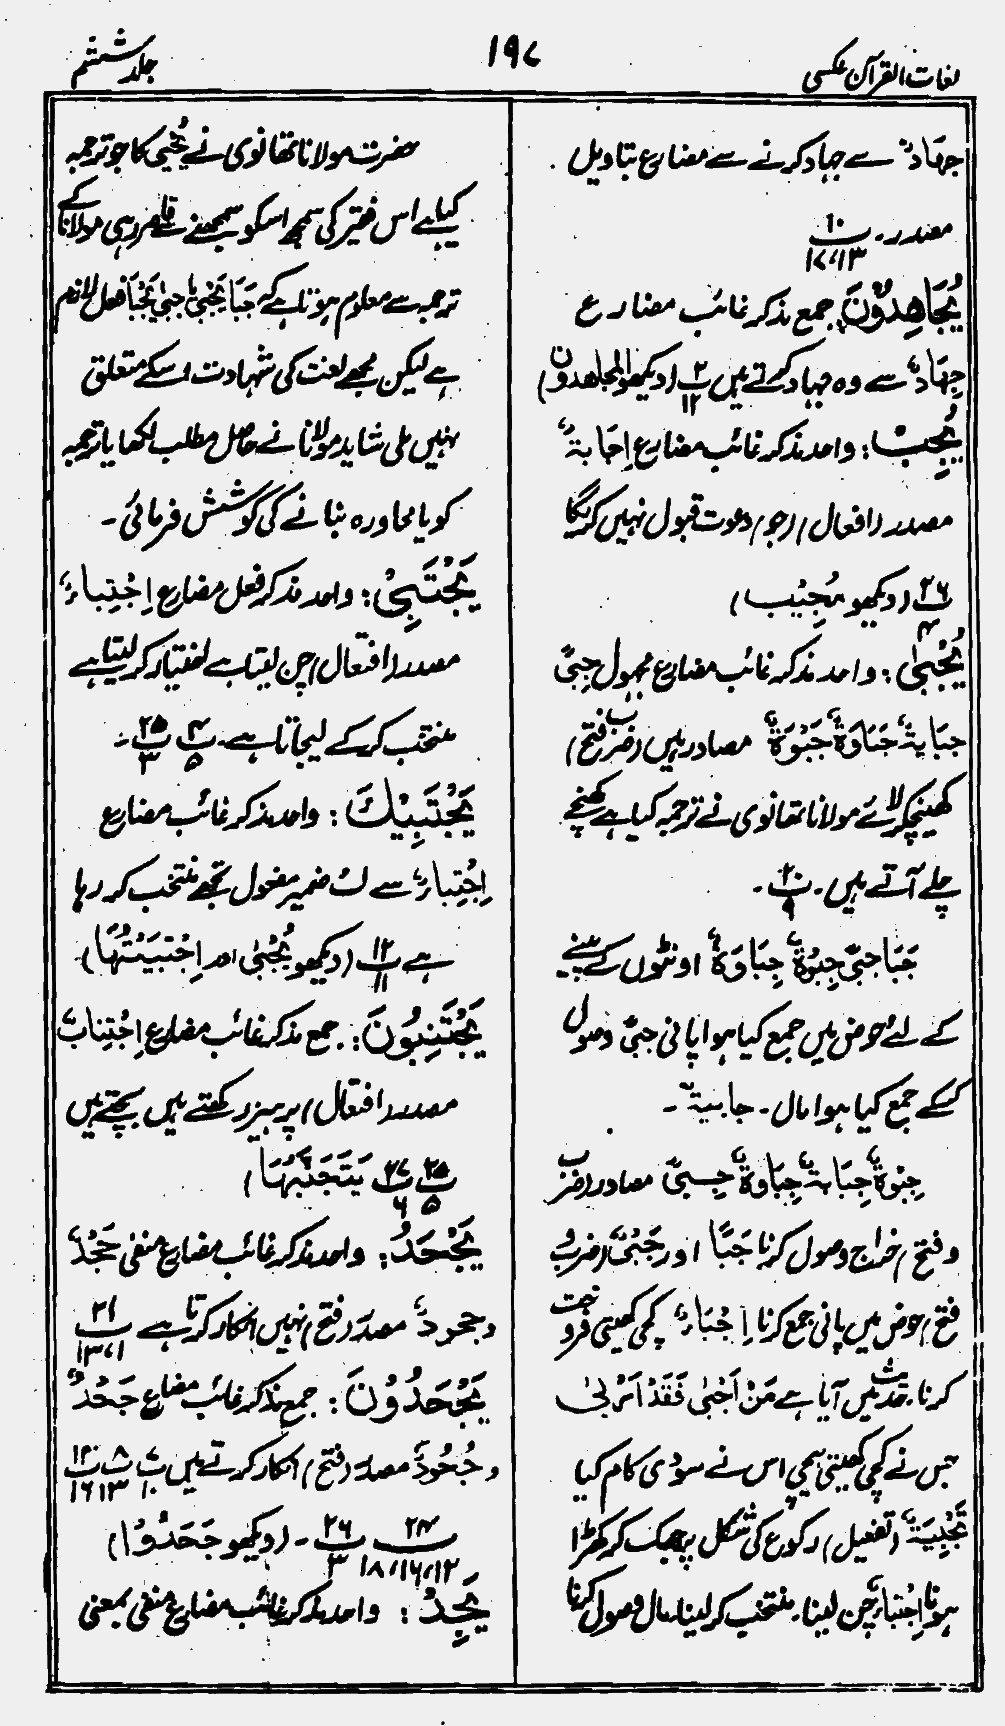 لغات القرآن عکسی
۱۹۷
جلد ششم
جِهَادٌ سے جہاد کرنے سے مضارع بتاویل
مصدر۔ ۱۰پ ۱۳، ۱۷
يُجَاهِدُوْنَ: جمع مذکر غائب مضارع
جِهَادٌ سے وہ جہاد کرتے ہیں ۲پ ۱۲ (دیکھو المجاهدون)
يُجِبْ: واحد مذکر غائب مضارع اِجَابَةٌ
مصدر (افعال) (جو) دعوت قبول نہیں کریگا
۲۶پ ۴ (دیکھو مُجِيْب)
يُجْبٰى: واحد مذکر غائب مضارع مجہول جَبْیٌ
جِبَايَةٌ جِبَاوَةٌ جَبْوَةٌ مصادر ہیں (ضرب فتح)
کھینچکر لائے مولانا تھانوی نے ترجمہ کیا ہے کھنچے
چلے آتے ہیں۔ ۲۰پ ۹۔
جَبَا جَبًی جِبْوَةٌ جِبَاوَةٌ اونٹوں کے پینے
کے لئے حوض میں جمع کیا ہوا پانی جبًی وصول
کرکے جمع کیا ہوا مال۔ جابیة۔
جِبْوَةٌ جِبَايَةٌ جِبَاوَةٌ جِبًی مصادر (ضرب
وفتح) خراج وصول کرنا جَبًّا اور جَبْیٌ (ضرب و
فتح) حوض میں پانی جمع کرنا اِجْبَاءٌ کچی کھیتی فروخت
کرنا۔ حدیث میں آیا ہے مَنْ اَجْبٰى فَقَدْ اَرْبٰى
جس نے کچی کھیتی بیچی اس نے سودی کام کیا
تَجْبِيَةٌ (تفعیل) رکوع کی شکل پر جھک کر کھڑا
ہونا اِجْتِبَاءٌ چن لینا۔ منتخب کر لینا۔ مال وصول کرنا
حضرت مولانا تھانوی نے یُجْبٰی کا جو ترجمہ
کیا ہے اس فقیر کی سمجھ اسکو سمجھنے سے قاصر رہی مولانا کے
ترجمہ سے معلوم ہوتا ہے کہ جَبَا یَجْبِیْ یا جبٰی یَجْبَا فعل لازم
ہے لیکن مجھے لغت کی شہادت اسکے متعلق
نہیں ملی شاید مولانا نے حاصل مطلب لکھا یا ترجمہ
کو با محاورہ بنانے کی کوشش فرمائی۔
يَجْتَبِيْ: واحد مذکر فعل مضارع اِجْتِباءٌ
مصدر (افتعال) چن لیتا ہے اختیار کر لیتا ہے
منتخب کرکے لیجاتا ہے۔ ۴پ ۵ ۲۵پ ۳۔
يَجْتَبِيْكَ: واحد مذکر غائب مضارع
اِجْتِباءٌ سے كَ ضمیر مفعول تجھے منتخب کر رہا
ہے ۱۲پ ۱۱ (دیکھو يُجْبٰى اور اِجْتَبَيْتَهَا)
يَجْتَنِبُوْنَ: جمع مذکر غائب مضارع اِجْتِنَابٌ
مصدر (افتعال) پرہیز رکھتے ہیں بچتے ہیں
۲۵پ ۵ ۲۷پ ۶ يَتَجَنَّبُهَا)
يَجْحَدُ: واحد مذکر غائب مضارع منفی جَحْدٌ
وجحودٌ مصدر (فتح) نہیں انکار کرتا ہے ۲۱پ ۱، ۱۳
يَجْحَدُوْنَ: جمع مذکر غائب مضارع جَحْدٌ
وجُحُوْدٌ مصدر (فتح) انکار کرتے ہیں ۷پ ۱۰ ۸پ ۱۳ ۱۴پ ۱۶
۲۴پ ۱۲، ۱۶، ۱۸ ۲۶پ ۳۔ (دیکھو جَحَدُوْا)
يَجِدُ: واحد مذکر غائب مضارع منفی بمعنی